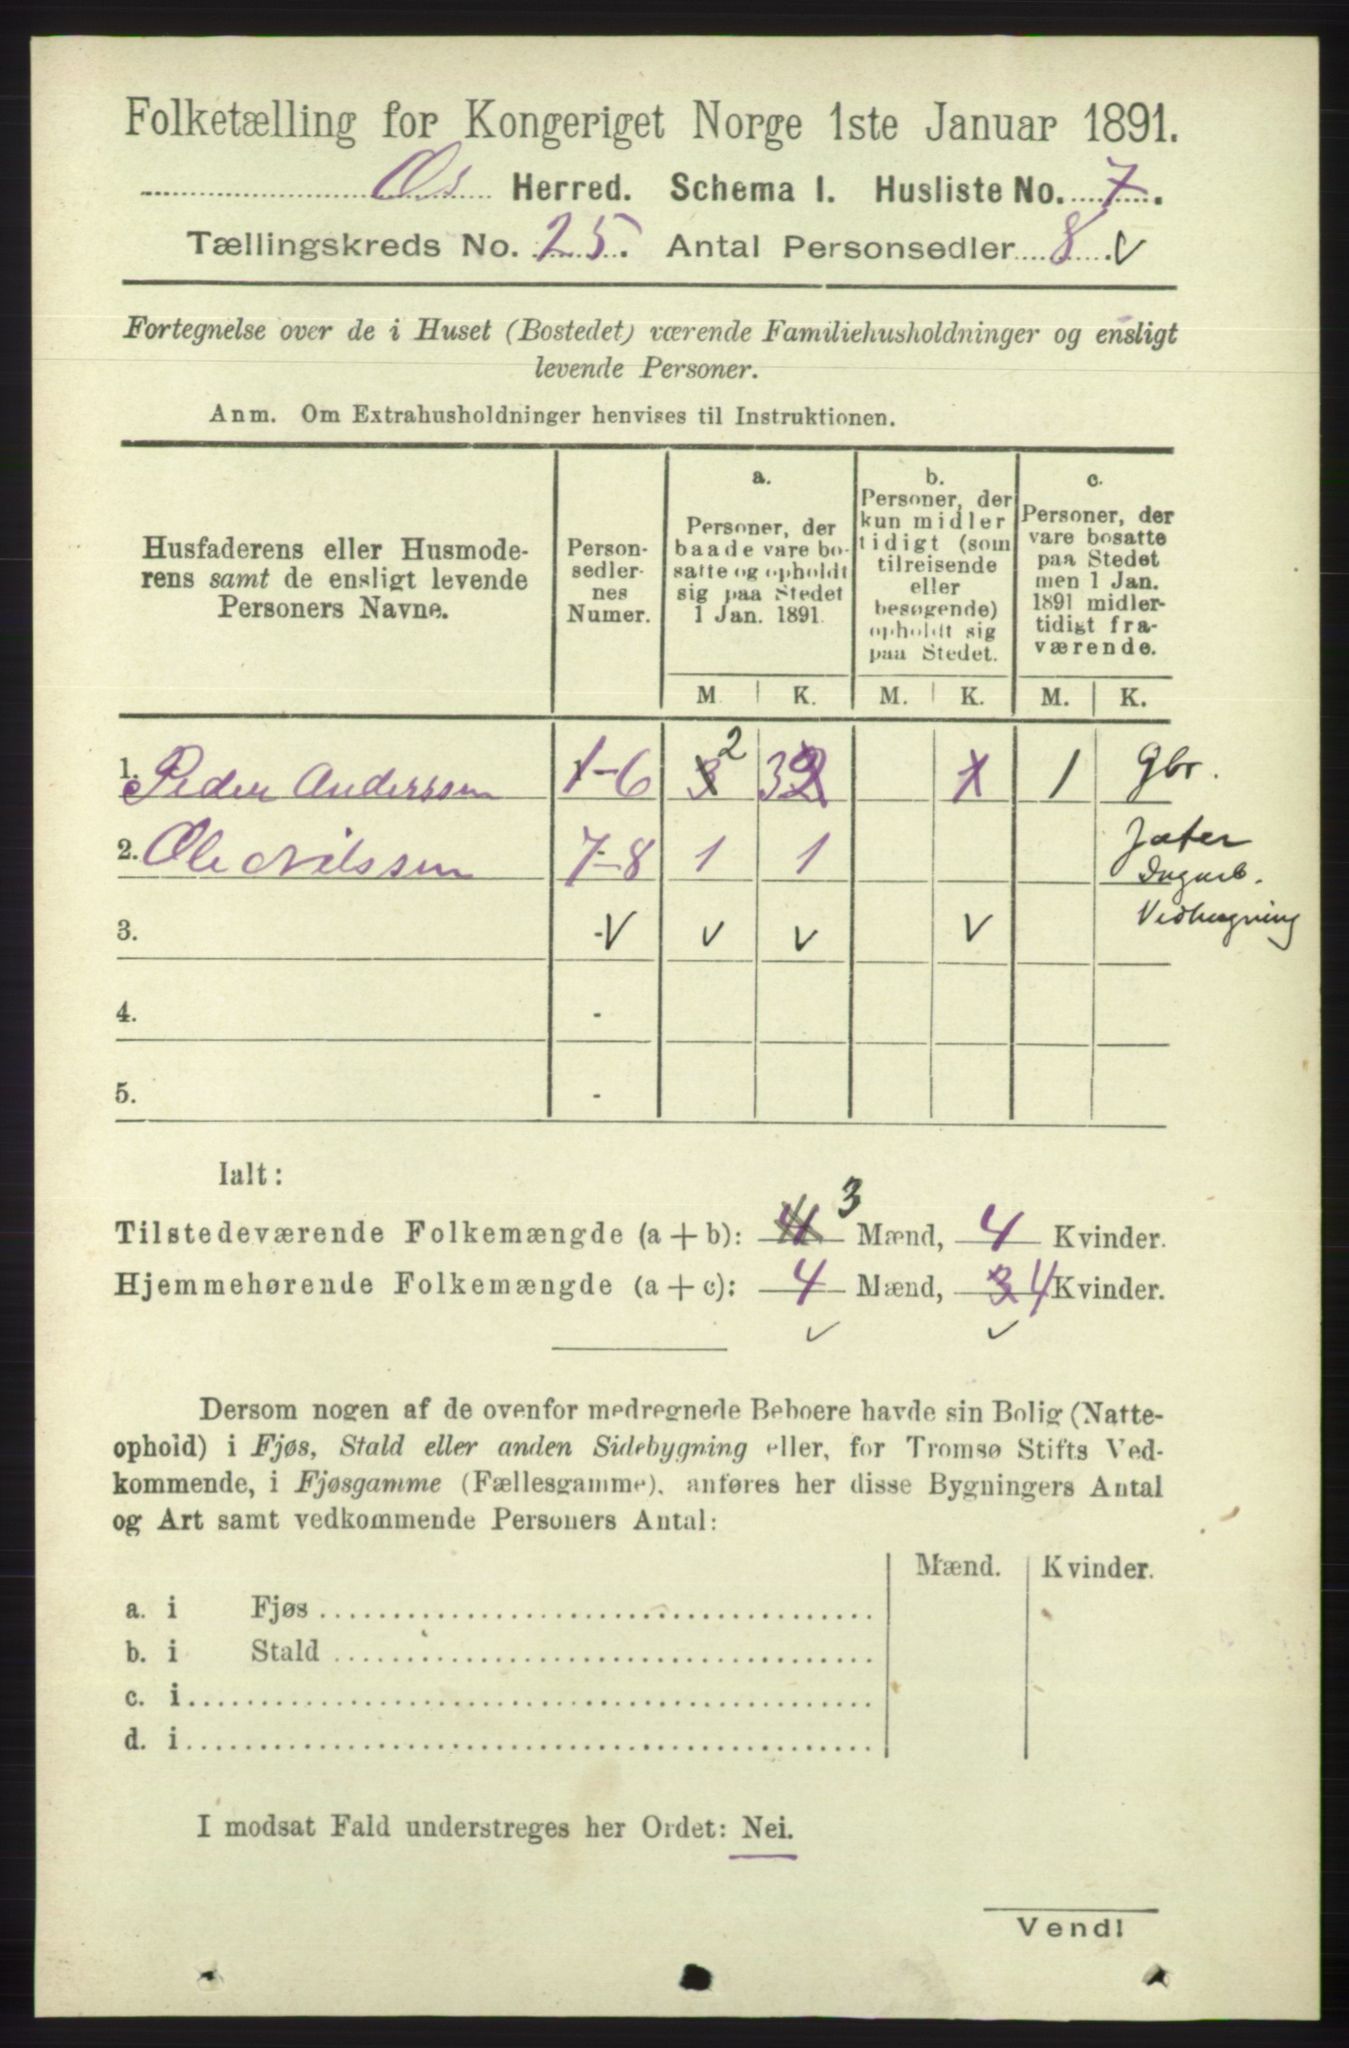 Folketælling for Kongeriget Norge 1ste Januar 1891.
Os Herred. Schema I. Husliste No. 7.
Tællingskreds No. 25. Antal Personsedler 8 v
Fortegnelse over de i Huset (Bostedet) værende Familiehusholdninger og ensligt
levende Personer.
Anm. Om Extrahusholdninger henvises til Instruktionen.
Husfaderens eller Husmode-
rens samt de ensligt levende
Personers Navne.
Person-
sedler-
nes
Numer.
a.
Personer, der
baade vare bo-
satte og opholdt
sig paa Stedet
1 Jan. 1891.
b.
Personer, der
kun midler
tidigt (som
tilreisende
eller
besøgende)
opholdt sig
paa Stedet.
c.
Personer, der
vare bosatte
paa Stedet
men 1 Jan.
1891 midler-
tidigt fra-
værende.
M. K. M. K. M. K.
1. Peder Anderssen 1-6 3 2 3 2 1 1 Gbr.
2. Ole Nilssen 7-8 1 1
3. - v v v v
4. -
5. -
Ialt:
Tilstedeværende Folkemængde (a + b): 4 3 Mænd, 4 Kvinder.
Hjemmehørende Folkemængde (a + c): 4 Mænd, 3 4 Kvinder.
v v
Dersom nogen af de ovenfor medregnede Beboere havde sin Bolig (Natte-
ophold) i Fjøs, Stald eller anden Sidebygning eller, for Tromsø Stifts Ved-
kommende, i Fjøsgamme (Fællesgamme), anføres her disse Bygningers Antal
og Art samt vedkommende Personers Antal:
Mænd. Kvinder.
a. i Fjøs
b. i Stald
c. i
d. i
I modsat Fald understreges her Ordet: Nei.
Vend!